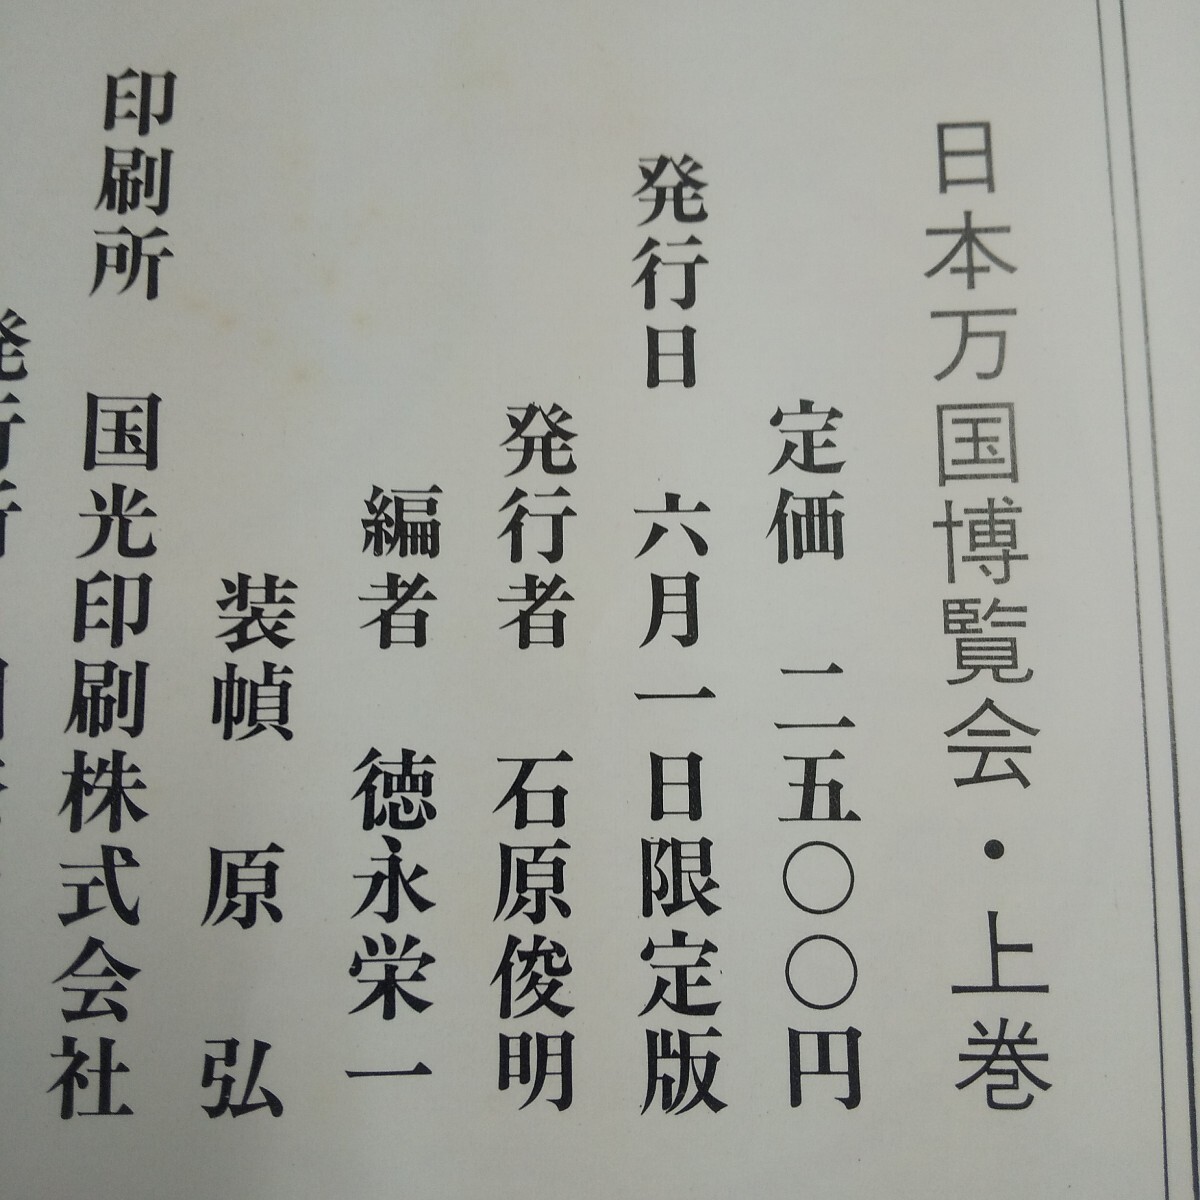 日本万国博覧会・上巻
定価 二五〇〇円
発行日 六月一日限定版
発行者 石原俊明
編者 徳永栄一
装幀 原 弘
印刷所 国光印刷株式会社
発行所